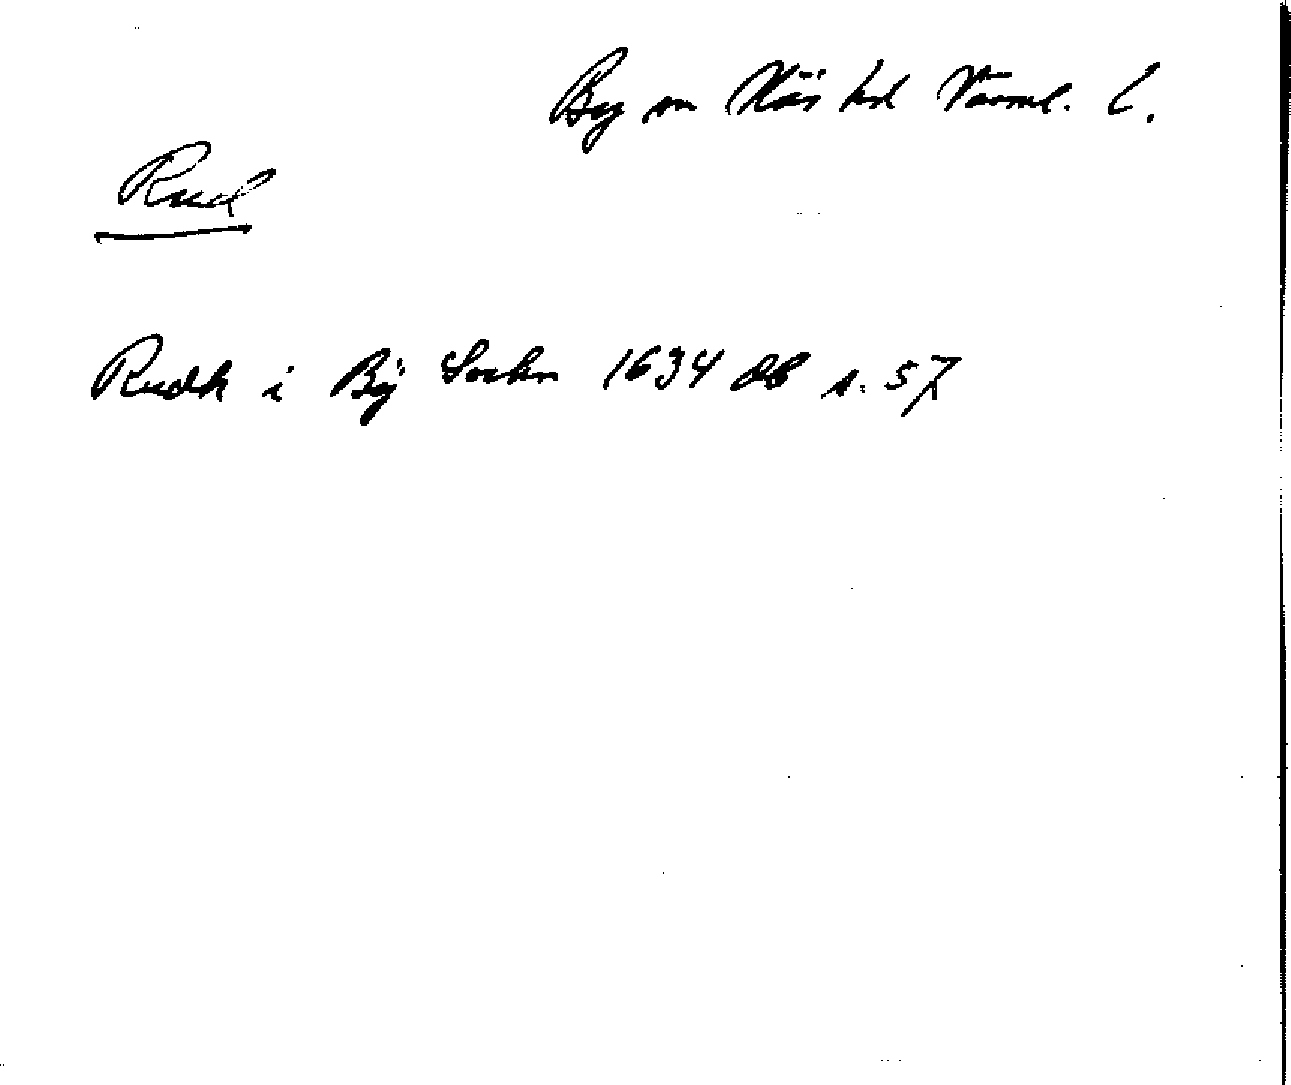 By sn Näs hd Värml. l.
Rud
Rudh i Bÿ Sockn 1634 db s. 57